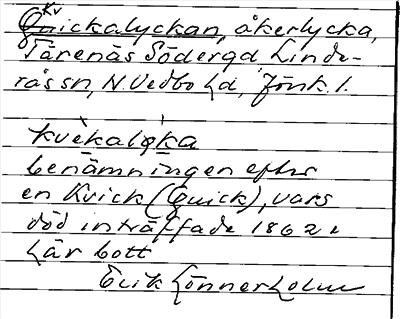 Kvickalyckan, åkerlycka,
Tärenäs Söderga, Linde-
rås sn, N. Vedbo hd, Jönk. l.
kvèkaløka
benämningen efter
en Kvick (Quick), vars
död inträffade 1862 i
här bott
Erik Lönnerholm